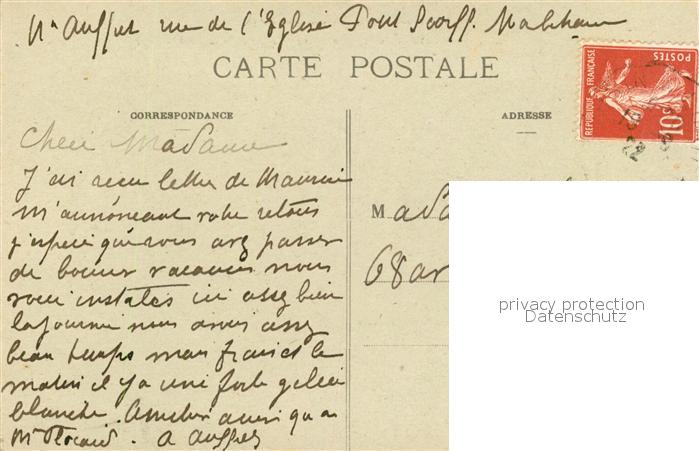 Mr Auffret rue de l'Eglise Pont Scorff. Morbihan
CARTE POSTALE
CORRESPONDANCE
ADRESSE
REPUBLIQUE FRANÇAISE
POSTES
10c
Chere Madame
J'ai recu lettre de Maurice
m'annonceant votre retour
j'espere que vous avez passer
de bonnes vacances nous
voici instales ici assez bien
la journee nous avons assez
beau temps mais frais et le
matin il y a une forte gelée
blanche. Amities ainsi qu'a
Mr A Auffret
Mada
68 ar
privacy protection
Datenschutz